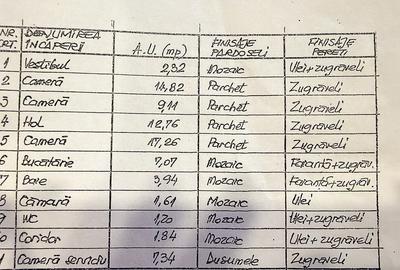 NR. CRT. DENUMIREA ÎNCAPERII A.U. (mp) FINISAJE PARDOSELI FINISAJE PERETI
1 Vestibul 2,32 Mozaic Ulei+zugrăveli
2 Cameră 14,82 Parchet Zugrăveli
3 Cameră 9,11 Parchet Zugrăveli
4 Hol 12,76 Parchet Zugrăveli
5 Cameră 17,26 Parchet Zugrăveli
6 Bucătărie 7,07 Mozaic Faianță+zugrăv.
7 Baie 3,94 Mozaic Faianță+zugrăv.
8 Cămară 1,61 Mozaic Ulei
9 WC 1,20 Mozaic Ulei+zugrăveli
0 Coridor 1.84 Mozaic Ulei+zugrăveli
1 Cameră serviciu 7,34 Dusumele Zugrăveli